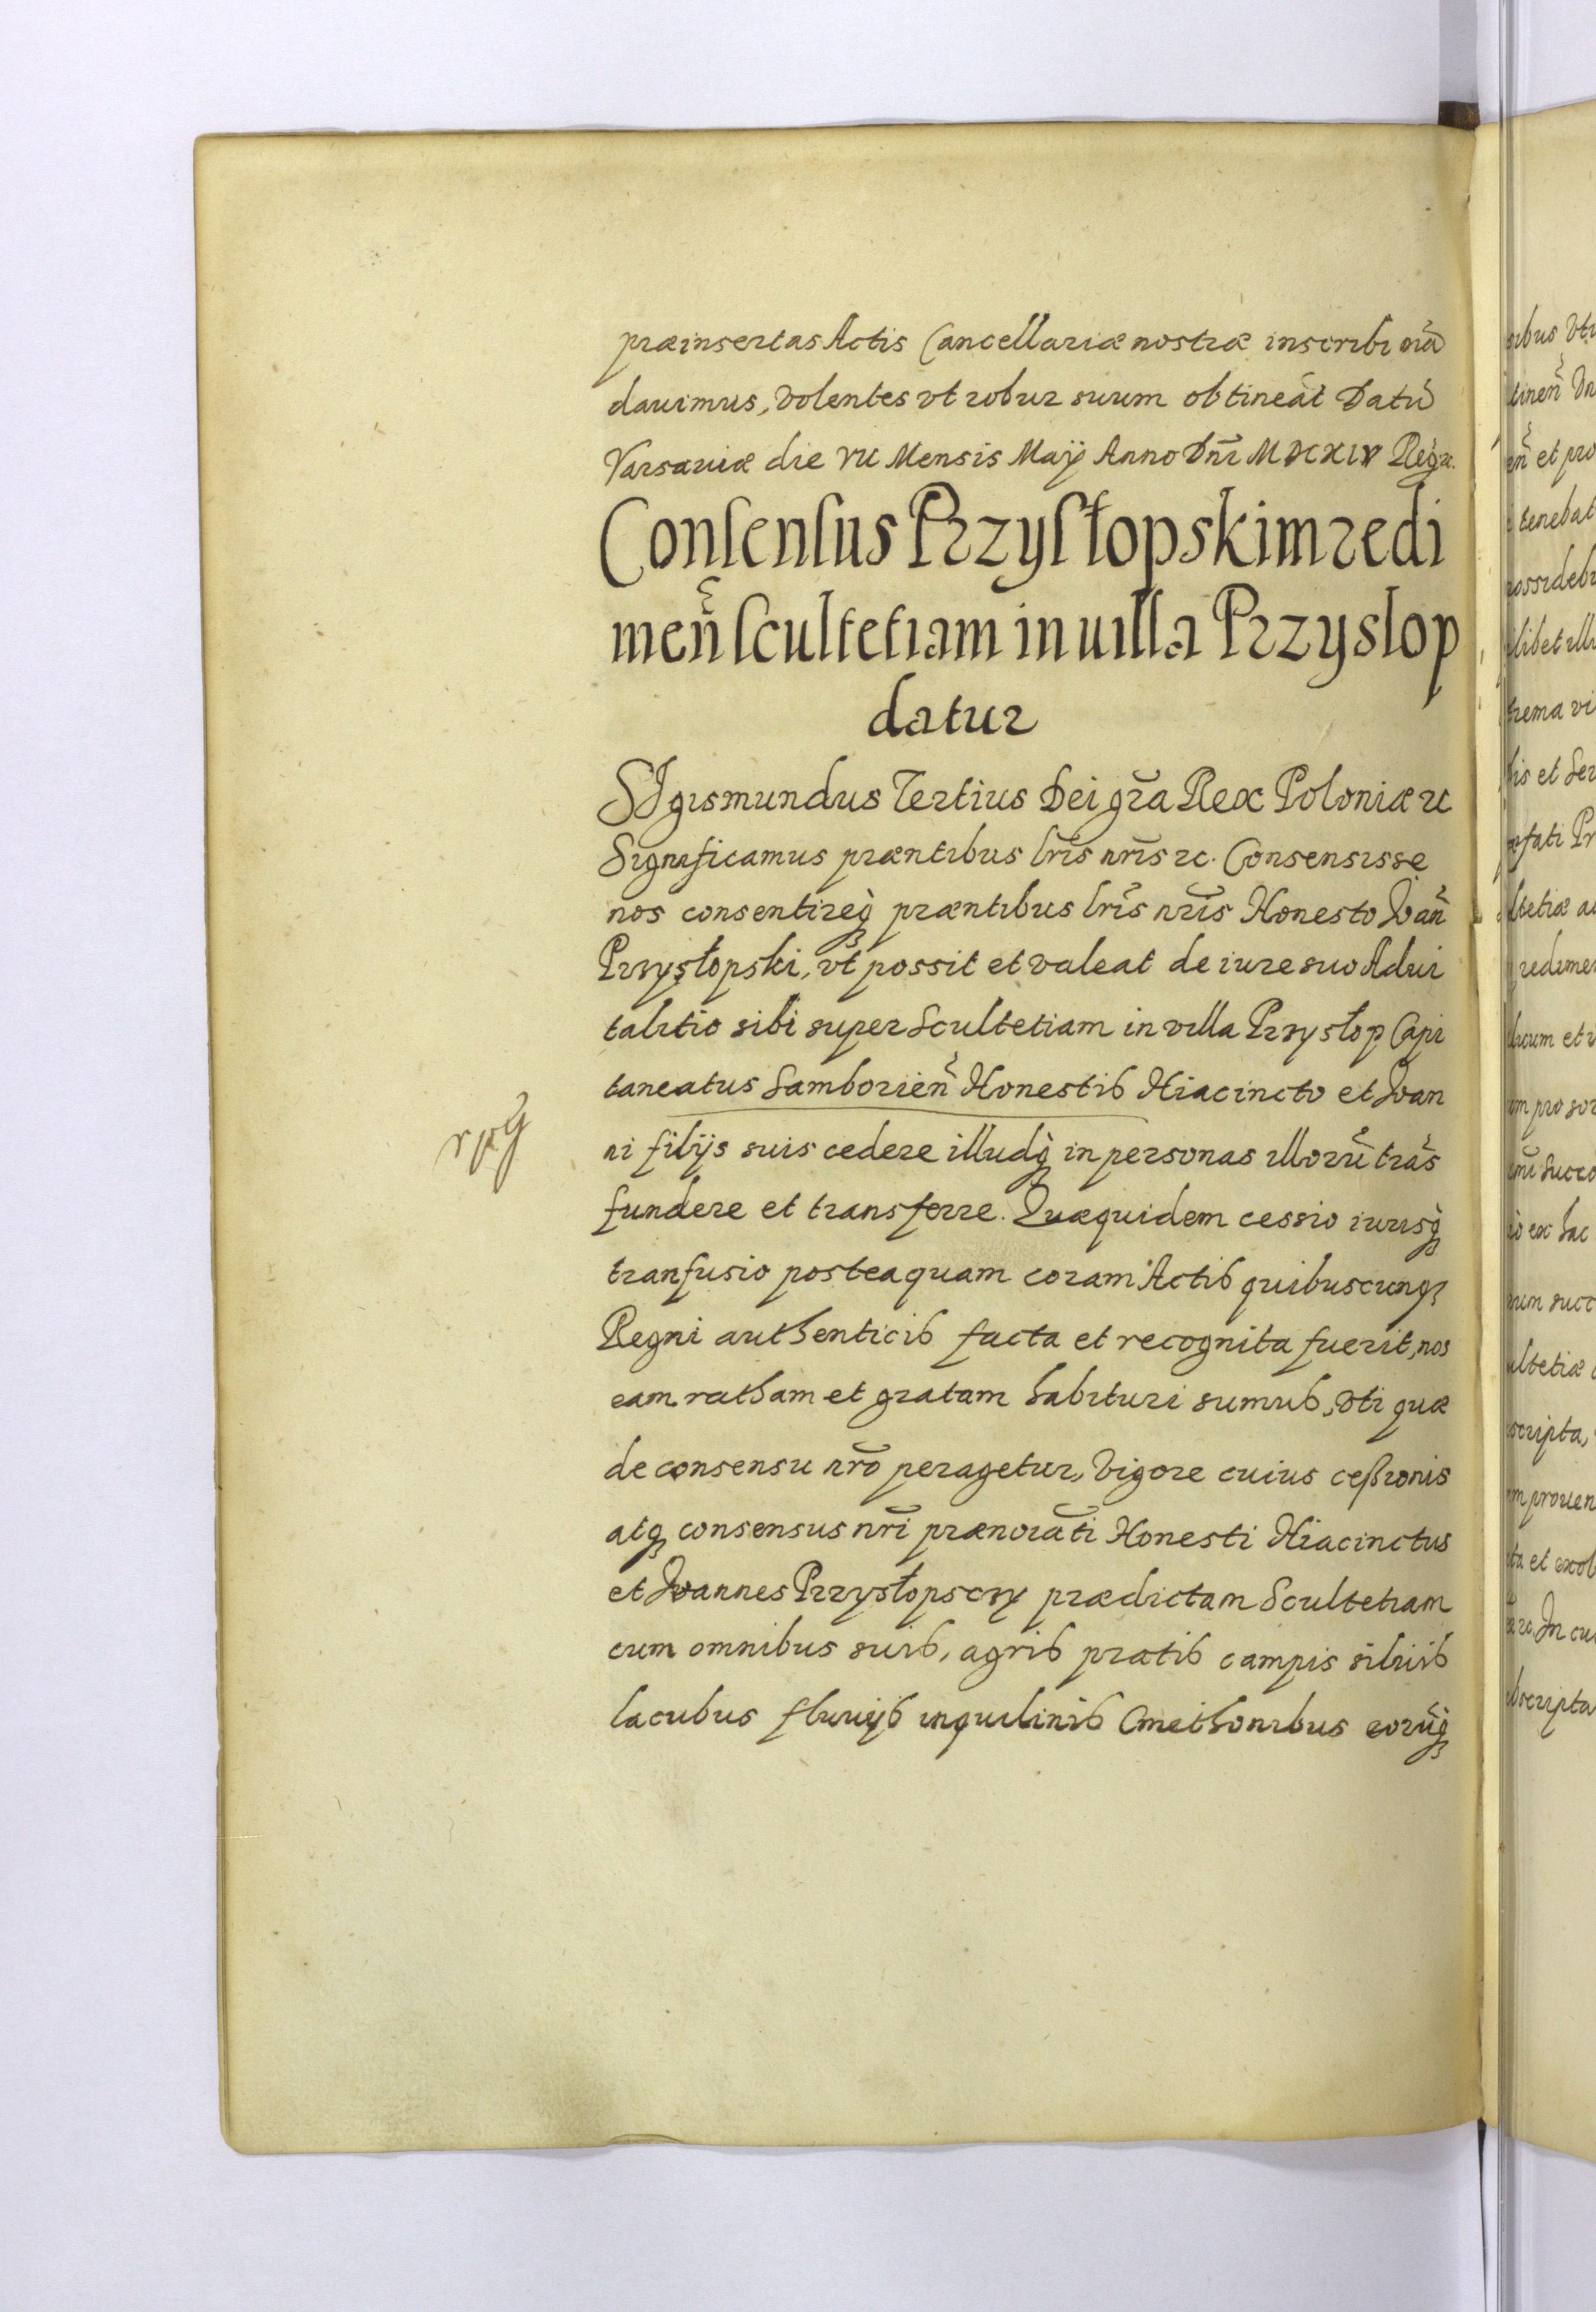 præinsertas Actis Cancellariæ nostræ inscribi mā
davimus, volentes vt robur suum obtineāt Datū
Varsaviæ die VII Mensis Maÿ Anno Dn̄i MDCXIV Regr.
Consensus Przysłopski in redi
men̄ scultetiam in uilla Przyslop
datur
SIgismundus Tertius Dei gr̄a Rex Poloniæ rc
Significamus præntibus lr̄is nr̄is rc. Consensisse
nos consentireq́ præntibus lr̄is nr̄is Honesto Ioan̄
Przysłopski, vt possit et valeat de iure suo Advi
talitio sibi super Scultetiam in villa Przysłop Capi
taneatus Samborien̄ Honestis Hiacincto et Ioan
ni filijs suis cedere illudq́ in personas illorū trās
fundere et transferre. Quæquidem cessio iurisq́
tranfusio posteaquam coram Actis quibuscunq3
Regni authenticis facta et recognita fuerit, nos
eam ratham et gratam habituri sumus, vti quæ
de consensu nr̄o peragetur, Vigore cuius ceßionis
atq consensus nr̄i prænorāti Honesti Hiacinctus
et Ioannes Przysłopscsy prædictam Scultetiam
cum omnibus suis, agris pratis campis silvis
lacubus fluvijs inquilinis Cmethonibus eorūq́